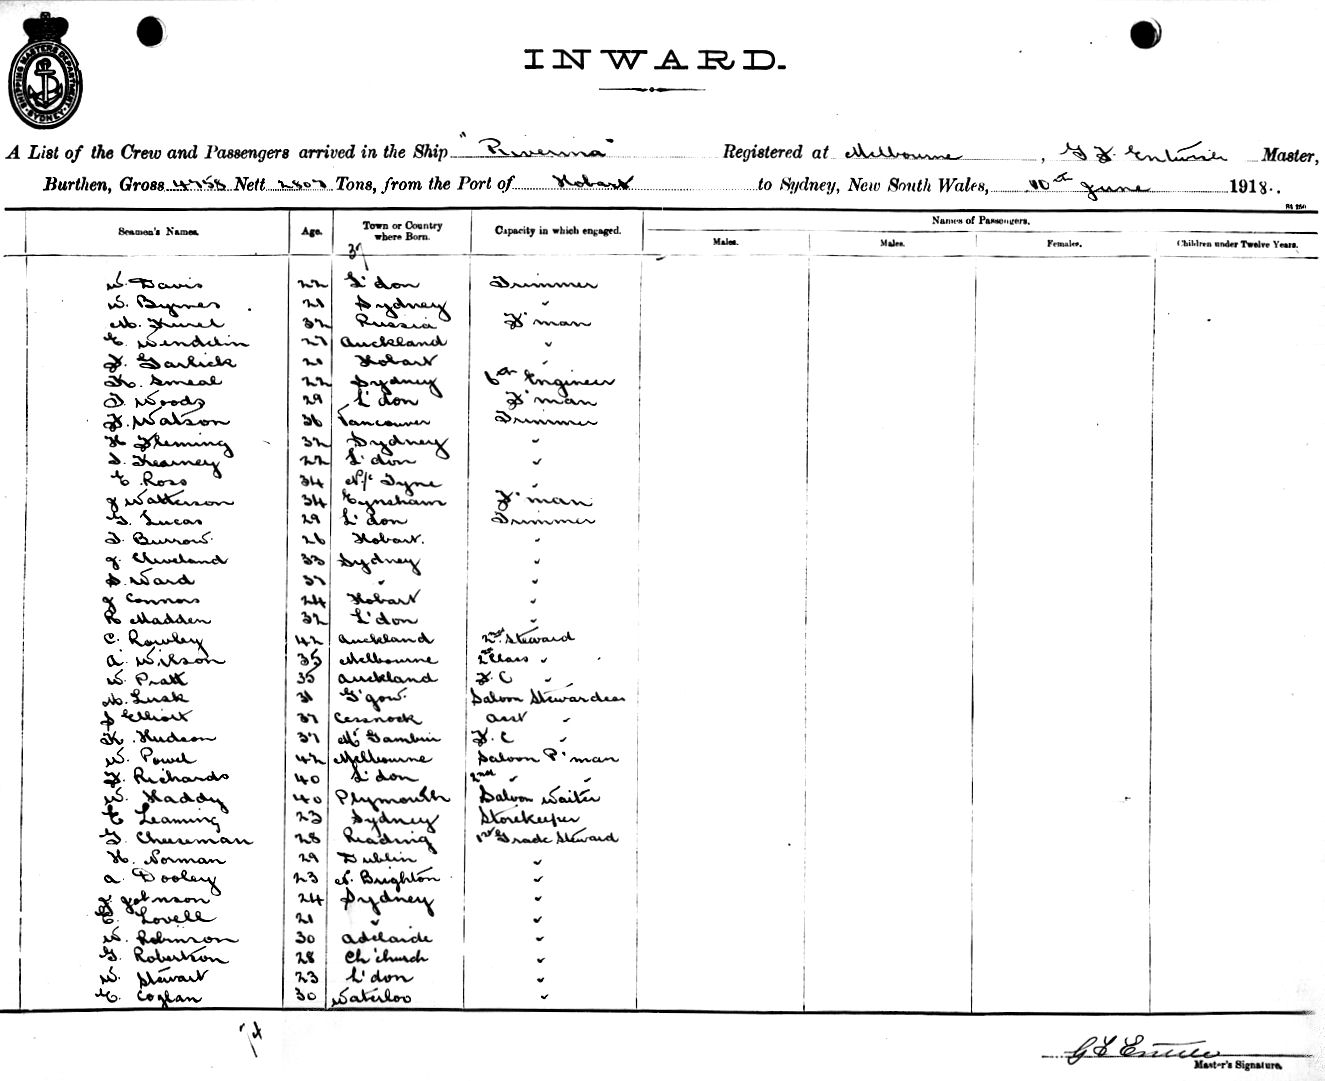 SHIPPING MASTERS DEPARTMENT SYDNEY
INWARD.
A List of the Crew and Passengers arrived in the Ship "Riverina" Registered at Melbourne, G F Entwisle Master,
Burthen, Gross 4758 Nett 2807 Tons, from the Port of Hobart to Sydney, New South Wales, 10th June 1918.
Names of Passengers.
Seamen's Names. Age. Town or Country where Born. Capacity in which engaged. Males. Males. Females. Children under Twelve Years.
37
W. Davis 22 L'don Trimmer
W. Byrnes 21 Sydney "
M. 32 Russia F'man
E. Wenddin 27 Auckland "
F. Garlick 20 Hobart "
H. Smeal 22 Sydney 6th Engineer
T. Woods 29 L'don F'man
F. Watson 36 Vancouver Trimmer
H Fleming 32 Sydney "
T. Kearney 22 L'don "
E Ross 34 N/c Tyne "
J Watterson 34 Eynsham F'man
G. Lucas 29 L'don Trimmer
T. Burrow. 26 Hobart. "
J. Cleveland 33 Sydney "
S. Ward 37 " "
J Connors 24 Hobart "
R Madden 32 L'don "
C. Rowley 42 Auckland 2nd Steward
A. Wilson 35 Melbourne 2nd Class "
W. Pratt 35 Auckland F. C "
M. Lusk 31 G'gow. Saloon Stewardess
S Elliott 37 Cessnock Asst "
K. Hudson 37 Mt Gambier F. C "
W. Powel 42 Melbourne Saloon P'man
F. Richards 40 L'don 2nd " "
W. Haddy 40 Plymouth Saloon Waiter
E Leaming 23 Sydney Storekeeper
G. Cheeseman 28 Reading 1st Grade Steward
H. Norman 29 Dublin "
A. Dooley 23 N. Brighton "
Johnson 24 Sydney "
C. Lovell 21 " "
W. Robinson 30 Adelaide "
G. Robertson 28 Ch'church "
W. Stewart 23 L'don "
E. Coglan 30 Waterloo "
74
G F Entwisle
Master's Signature.